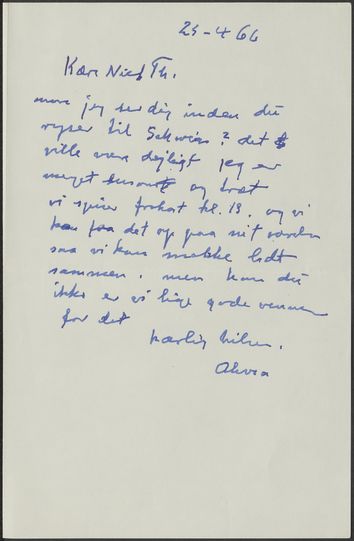 25-4 66
Kære Niels Th.
mon jeg ser dig inden du
rejser til Schweiz? det
ville være dejligt jeg er
meget og træt
vi spiser frokost kl. 13, og vi
kan faa det op paa mit værelse
saa vi kan snakke lidt
sammen. men kan du
ikke er vi lige gode venner
for det
kærlig hilsen.